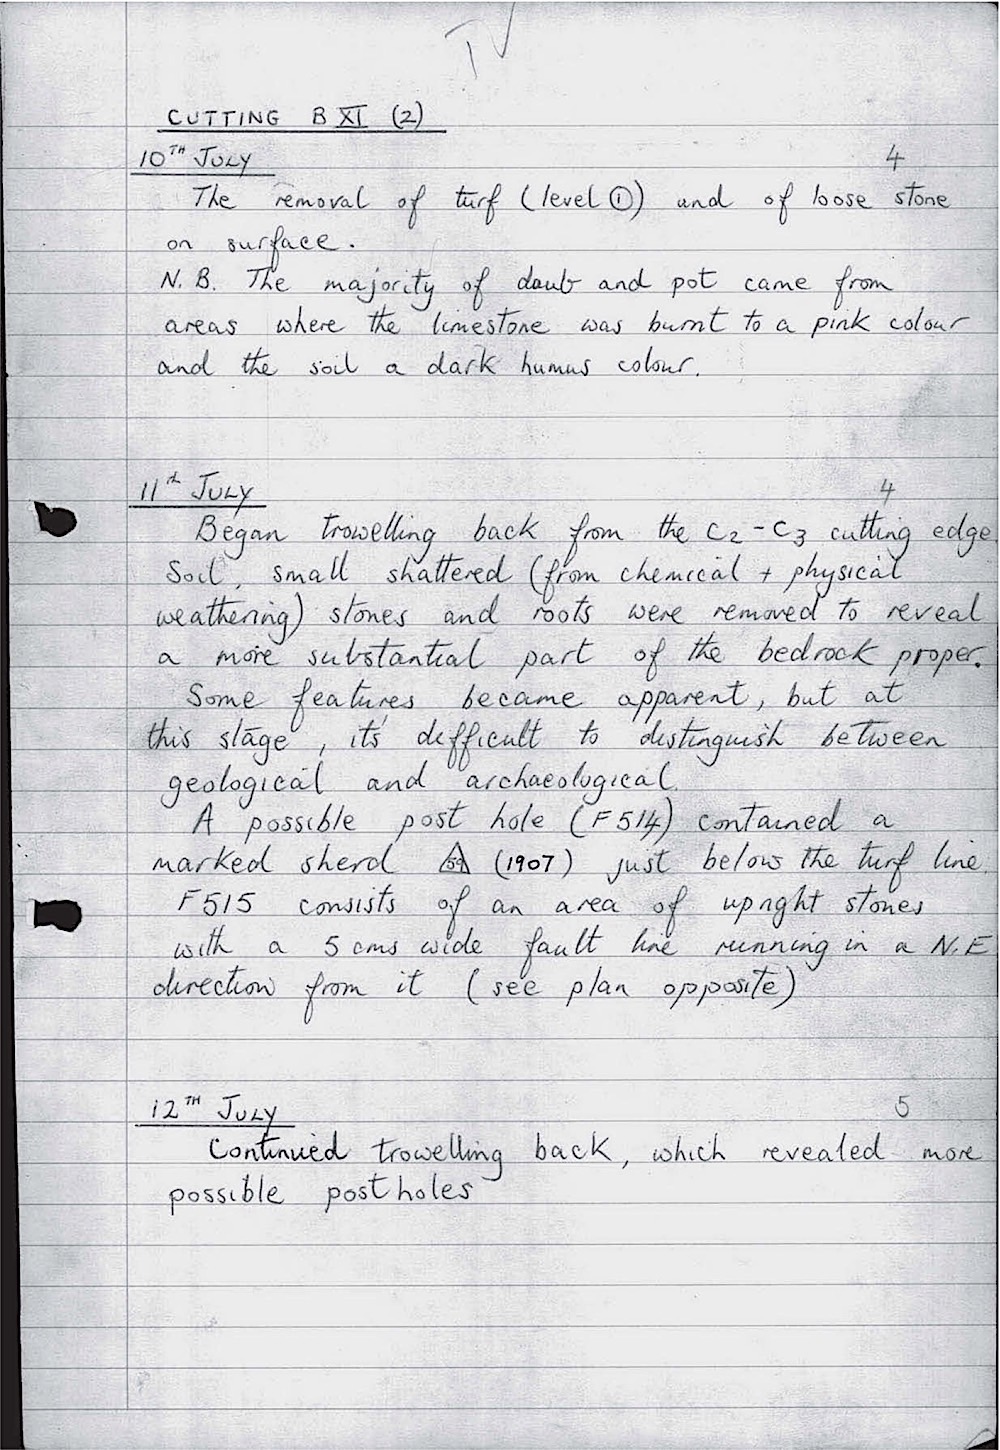 CUTTING B XI (2)
10TH JULY 4
The removal of turf (level ①) and of loose stone
on surface.
N.B. The majority of daub and pot came from
areas where the limestone was burnt to a pink colour
and the soil a dark humus colour.
11th JULY 4
Began trowelling back from the C2-C3 cutting edge.
Soil, small shattered (from chemical + physical
weathering) stones and roots were removed to reveal
a more substantial part of the bedrock proper.
Some features became apparent, but at
this stage, it's difficult to distinguish between
geological and archaeological.
A possible post hole (F514) contained a
marked sherd (1907) just below the turf line.
F515 consists of an area of upright stones
with a 5 cms wide fault line running in a N.E
direction from it (see plan opposite)
12TH JULY 5
Continued trowelling back, which revealed more
possible postholes